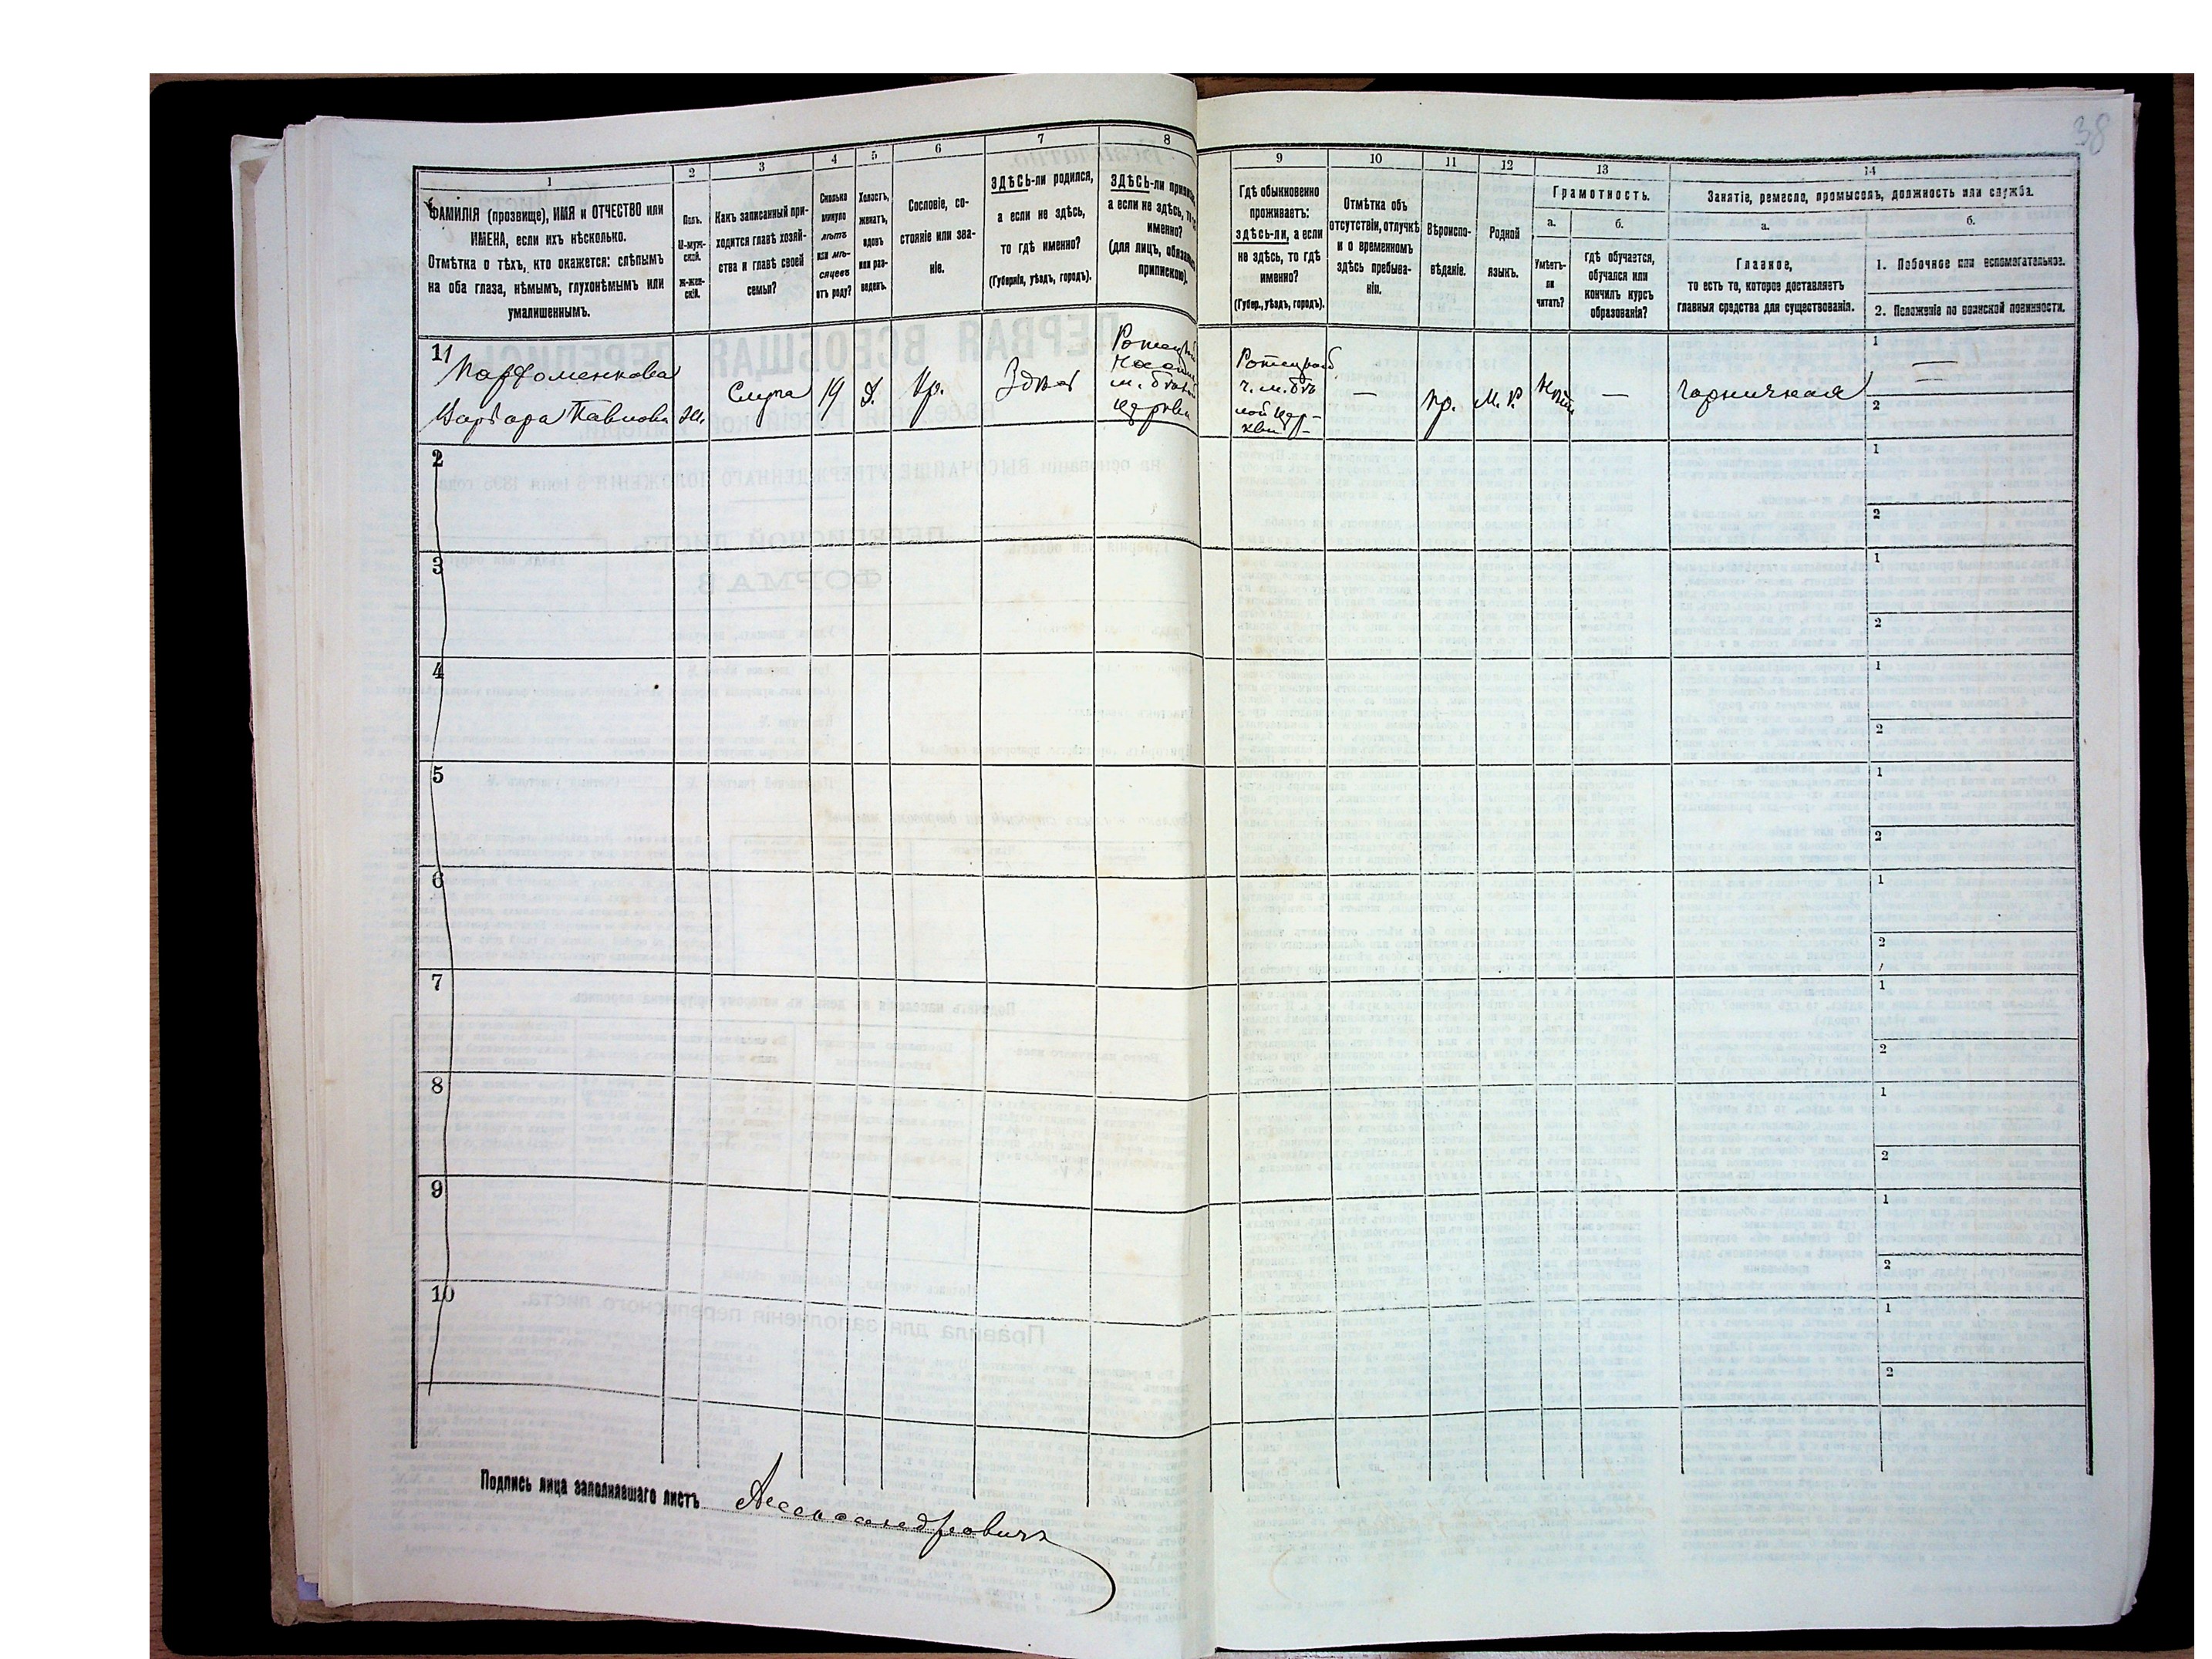 38
1
2
3
4
5
6
7
8
9
10
11
12
13
14
ФАМИЛІЯ (прозвище), ИМЯ и ОТЧЕСТВО или
ИМЕНА, если ихъ нѣсколько.
Отмѣтка о тѣхъ, кто окажется: слѣпымъ
на оба глаза, нѣмымъ, глухонѣмымъ или
умалишеннымъ.
Полъ.
М-муж-
ской.
Ж-жен-
скій.
Какъ записанный при-
ходится главѣ хозяй-
ства и главѣ своей
семьи?
Сколько
минуло
лѣтъ
или мѣ-
сяцевъ
отъ роду?
Холостъ,
женатъ,
вдовъ
или раз-
веденъ.
Сословіе, со-
стояніе или зва-
ніе.
ЗДѢСЬ-ли родился,
а если не здѣсь,
то гдѣ именно?
(Губернія, уѣздъ, городъ).
ЗДѢСЬ-ли
а если не здѣсь,
именно?
(для лицъ,
припискою).
Гдѣ обыкновенно
проживаетъ:
здѣсь-ли, а если
не здѣсь, то гдѣ
именно?
(Губер., уѣздъ, городъ).
Отмѣтка объ
отсутствіи, отлучкѣ
и о временномъ
здѣсь пребыва-
ніи.
Вѣроиспо-
вѣданіе.
Родной
языкъ.
Грамотность.
а.
б.
Умѣетъ-
ли
читать?
гдѣ обучается,
обучался или
кончилъ курсъ
образованія?
Занятіе, ремесло, промыселъ, должность или служба.
а.
б.
Главное,
то есть то, которое доставляетъ
главныя средства для существованія.
1. Побочное или вспомогательное.
2. Положеніе по воинской повинности.
11
Парфоменкова
Варвара Павлова
Ж.
Слуга
19
Д.
Кр.
Здѣсь
м. Бѣлой
Церкви
ч. м. Бѣ
лой Цер-
кви
—
Пр.
М. Р.
Нѣтъ
—
Горничная
1
2
2
1
2
3
1
2
4
1
2
5
1
2
6
1
2
7
1
2
8
1
2
9
1
2
10
1
2
Подпись лица заполнявшаго листъ Александровичъ